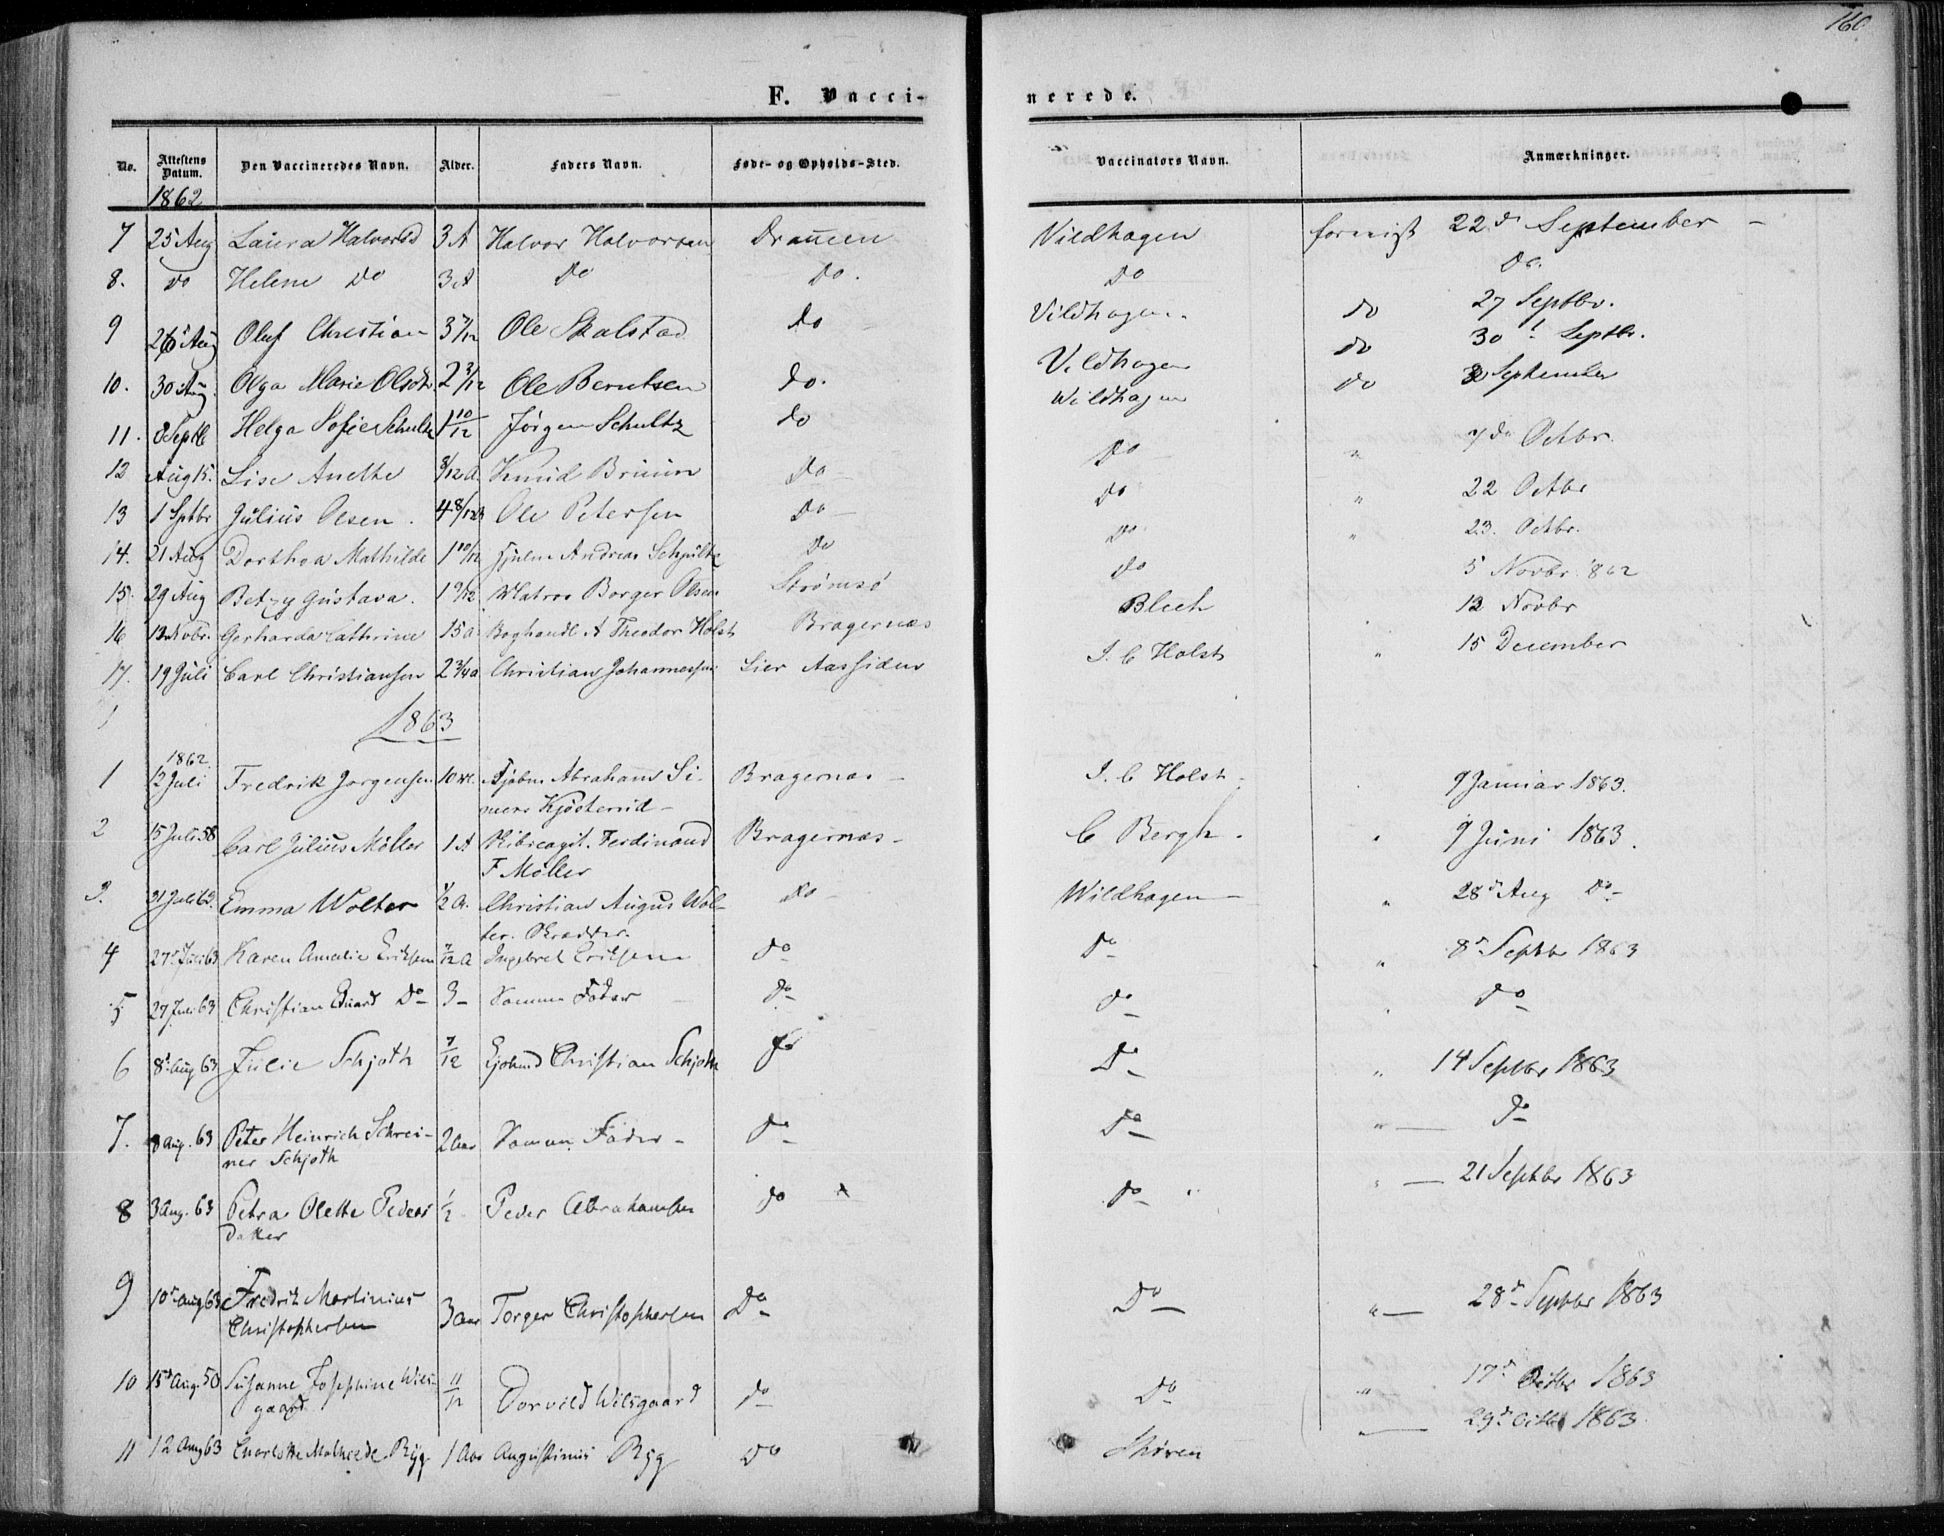 160
F. Vacci-
nerede.
No. Attestens Datum. Den Vaccineredes Navn. Alder. Faders Navn. Føde- og Opholds-Sted. Vaccinators Navn. Anmærkninger.
1862
7 25 Aug Laura Halvorsd 3 A Halvor Halvorsen Drammen Vildhagen forevist 22d September -
8. do Helene do 3 A do do. do do.
9 26 Aug Oluf Christian 3 7/12 Ole Skalstad do Vildhagen. do 27 Septbr.
10. 30 Aug. Olga Marie Olsdtr 2 3/12 Ole Berntsen do. Vildhagen do 30t Septbr.
11. 8 Septb Helga Sofie Schultz 1 10/12 Jørgen Schultz do Wildhagen do September
12 Aug 15. Lise Anette 8/12 a. Knud Bruun do - do " 7de Octbr.
13 1 Sptbr Julius Olsen. 4 8/12 Ole Petersen do - do " 22 Octbr
14. 21 Aug Dorthea Mathilde 1 10/12 Andreas Schultz do do " 23. Octbr.
15. 29 Aug Betzy Gustava. 1 9/12 Matros Borger Olsen Strømsø do 5 Novbr 1862
16 12 Novbr. Gerharda Cathrine 15 a Boghandl A Theodor Holst Bragernæs Blich " 12 Novbr
17. 19 Juli Carl Christiansen 2 3/4 a Christian Johannessen Lier Aassiden I. C Holst " 15 December
1863
1862.
1 12 Juli Fredrik Jørgensen 10 Abrahams Si- Bragernæs - I. C Holst. 9 Januar 1863.
mers Kjøsterud -
2 15 Juli 58 Carl Julius Møller 1 A Ferdinand Bragernæs - C Bergh. " 9 Juni 1863.
F Møller
3. 31 Juli 62. Emma Wolter 1/2 a. Christian Augus Wol- do - Wildhagen - " 28d Aug do -
ter.
4 27 63 Karen Amalie Eriksen 7/12 a Ingebret Eriksen do do " 8d Septbr 1863
5 27 63 Christian Eduard do 3 - Samme Fader - do do " do
6 8d Aug 63 Julie Schjøth 7/12 Christian Schjøth do do " 14 Septbr 1863
7. 8 Aug. 63 Peter Heinrich Schrei- 2 aar Samme Fader - do do " - do
ner Schjøth
8 3 Aug. 63 Petra Olette Peders 1/2 Peder Abrahamsen do do " - 21 Septbr 1863
datter
9 10d Aug 63 Fredrik Martinius 3 aar Torger Christophersen do do " - 28d Septbr 1863
Christophersen
10 15d Aug. 50 Susanne Josephine Wils- 11/12 Wilsgaard do do " 17d Octbr 1863
gaard
11 12 Aug 63 Charlotte Mathrede Ryg 1 Aar Augustinus Ryg do Skøven 29d Octbr 1863